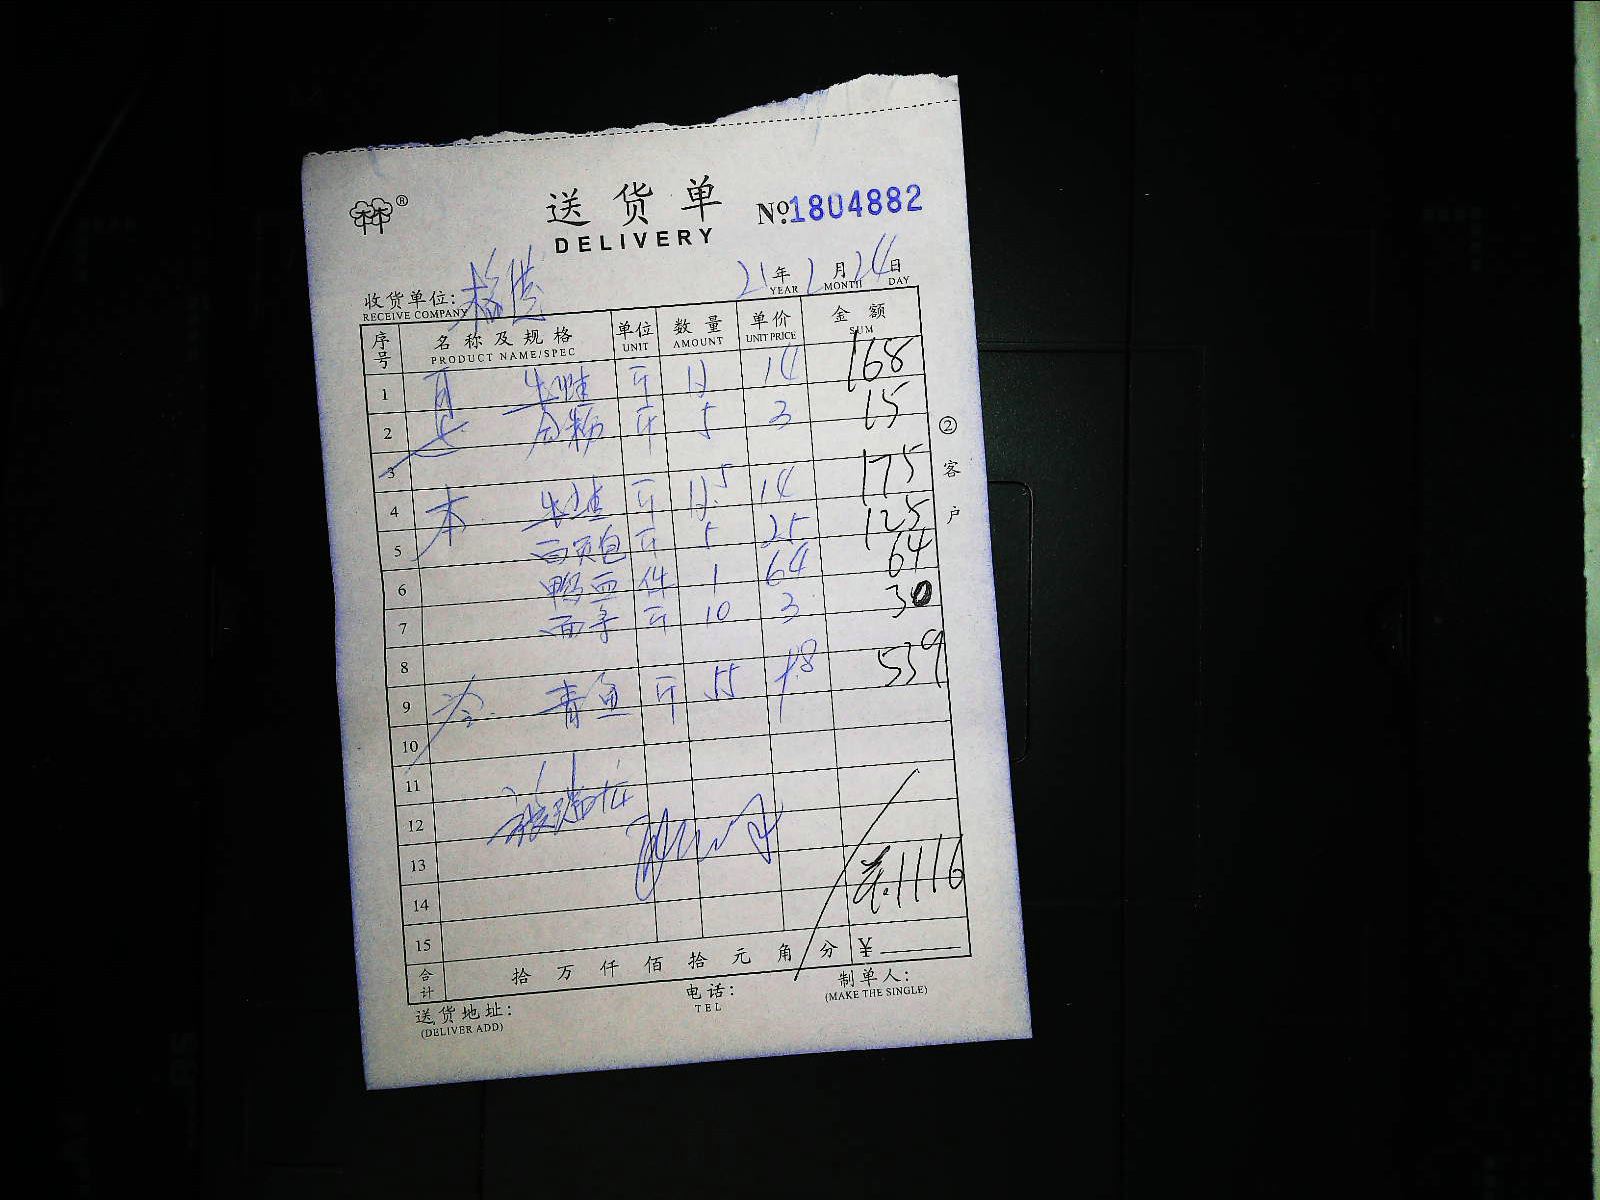 送货单 №1804882
DELIVERY
21年 月24日
YEAR MONTH DAY
收货单位:
RECEIVE COMPANY
序号 名称及规格 单位 数量 单价 金额
PRODUCT NAME/SPEC UNIT AMOUNT UNIT PRICE SUM
1 斤 12 14 168
2 斤 5 3 15
3
4 本 斤 12.5 14 175
5 斤 5 25 125
6 鸭血 件 1 64 64
7 面 斤 10 3 30
8
9 青鱼 斤 55 9.8 539
10
11
12
13
14 1116
15
合计 拾 万 仟 佰 拾 元 角 分 ¥
② 客户
送货地址:
(DELIVER ADD)
电话:
TEL
制单人:
(MAKE THE SINGLE)